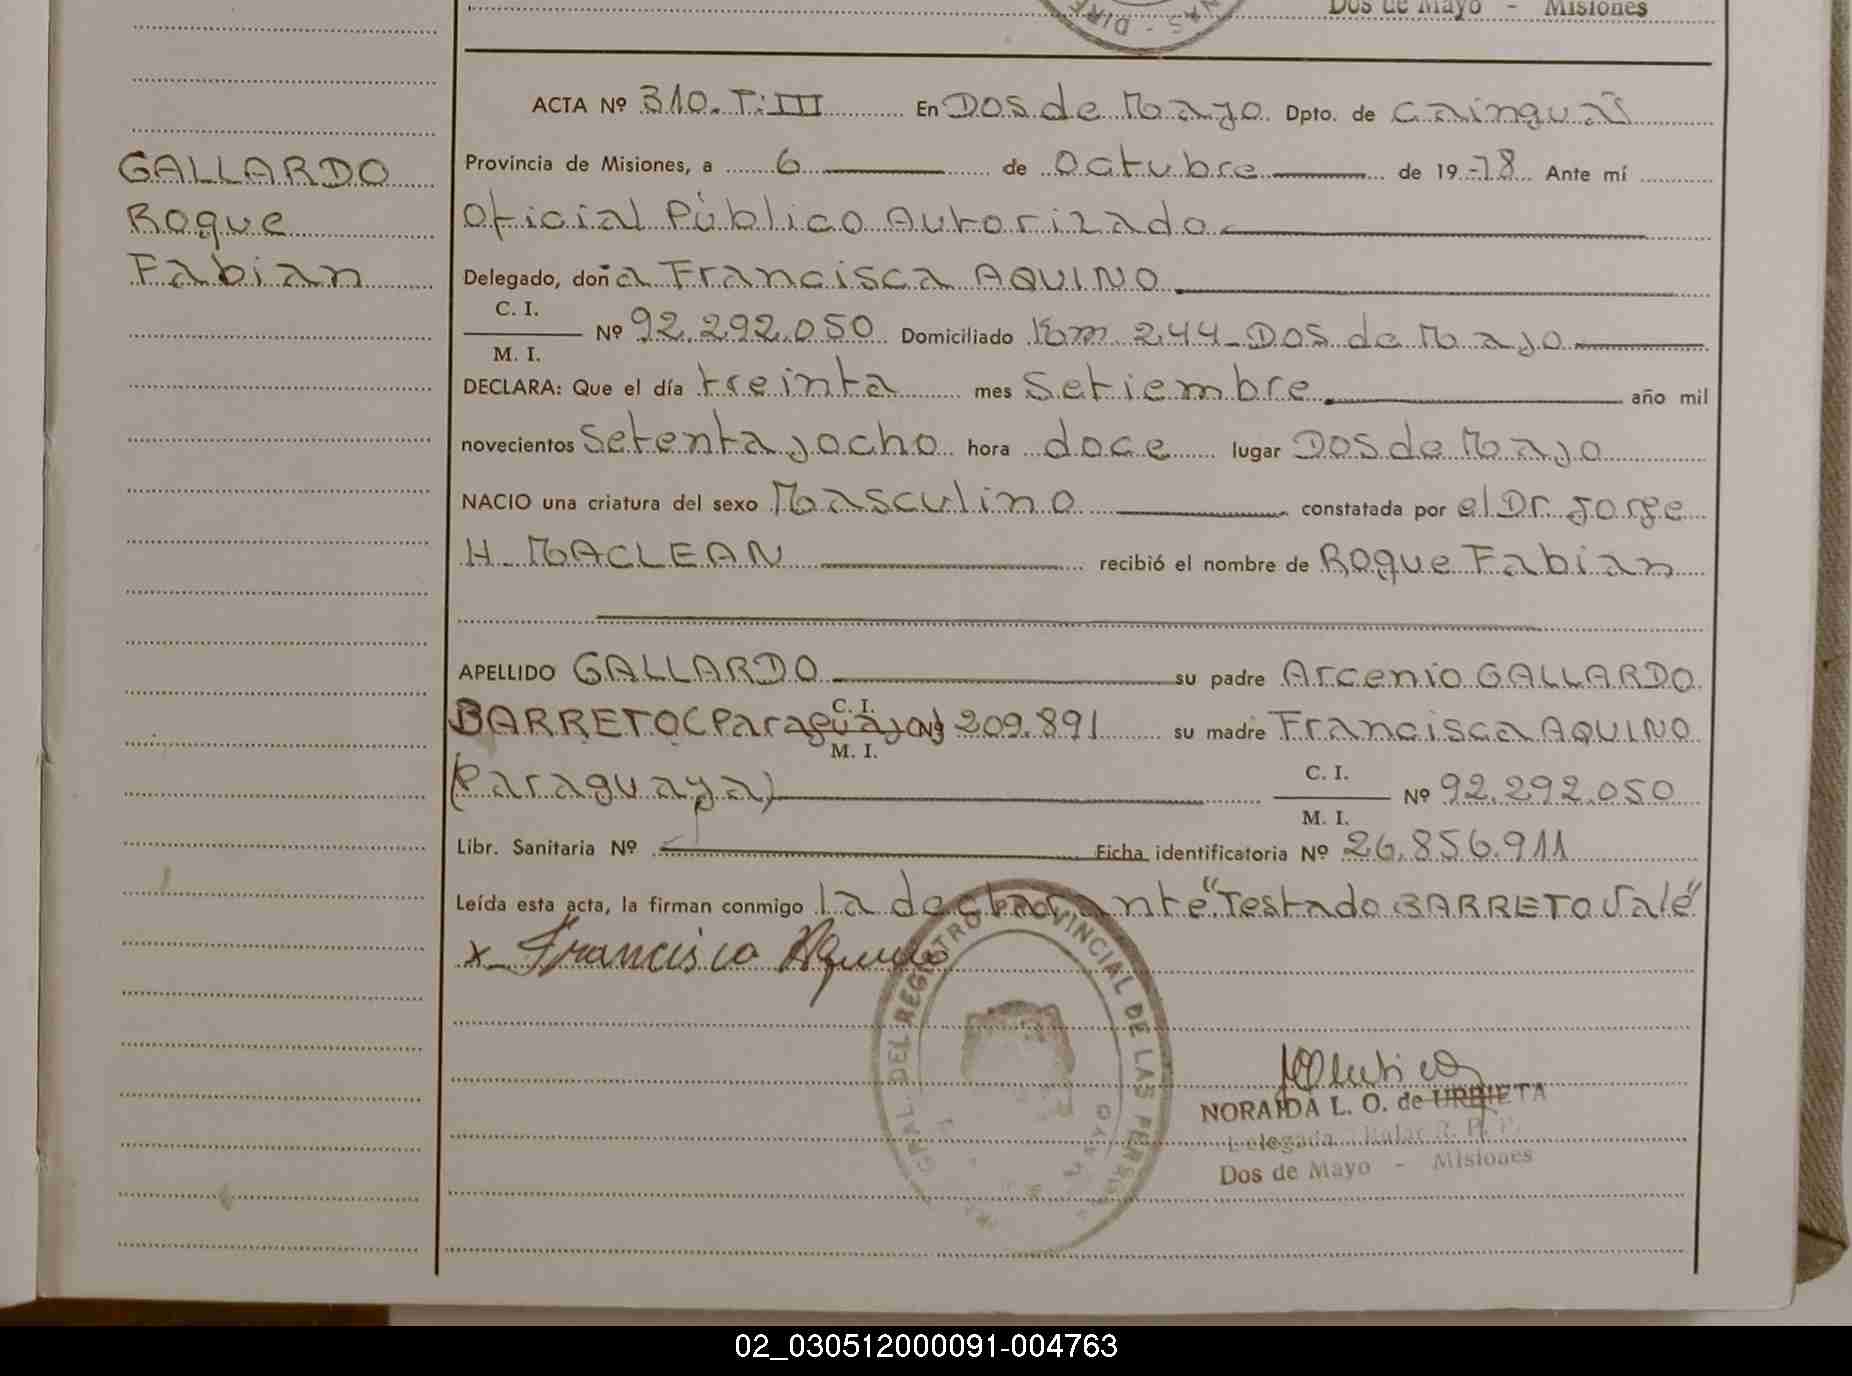 Dos de Mayo - Misiones
ACTA Nº 310. T: III En Dos de Mayo. Dpto. de Cainguaś
GALLARDO
Roque
Fabian
Provincia de Misiones, a 6 de Octubre de 19 78 Ante mí
Oficial Público Autorizado
Delegado, doña Francisca AQUINO
C. I.
M. I.
Nº 92.292.050 Domiciliado Km 244 - Dos de Mayo
DECLARA: Que el día treinta mes Setiembre año mil
novecientos Setenta y ocho hora doce lugar Dos de Mayo
NACIO una criatura del sexo Masculino constatada por el Dr. Jorge
H. MACLEAN recibió el nombre de Roque Fabian
APELLIDO GALLARDO su padre Arcenio GALLARDO
C. I.
BARRETO (Paraguayo) 209.891 su madre Francisca AQUINO
M. I.
(Paraguaya)
C. I.
M. I.
Nº 92.292.050
Libr. Sanitaria Nº Ficha identificatoria Nº 26.856.911
Leída esta acta, la firman conmigo la declarante "Testado BARRETO Vale"
x Francisca Aquino
GRAL. DEL REGISTRO PROVINCIAL DE LAS PERSONAS
NORAIDA L. O. de URBIETA
Delegada Titular R. P. P.
Dos de Mayo - Misiones
02_030512000091-004763